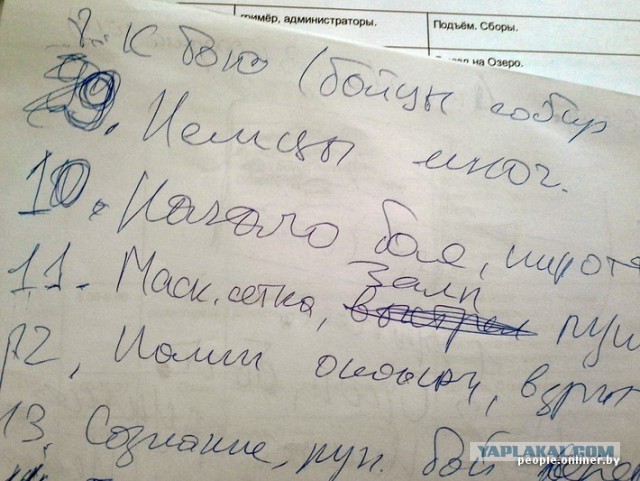 гримёр, администраторы.
Подъём. Сборы.
на Озеро.
8. К бою (бойцы собир
9. Немцы мног.
10. Начало боя,
залп
11. Маск. сетка, выстрел пуш
12, окопы, взрыв
13, Сознание, рук. бой
YAPLAKAL.COM
people.onliner.by